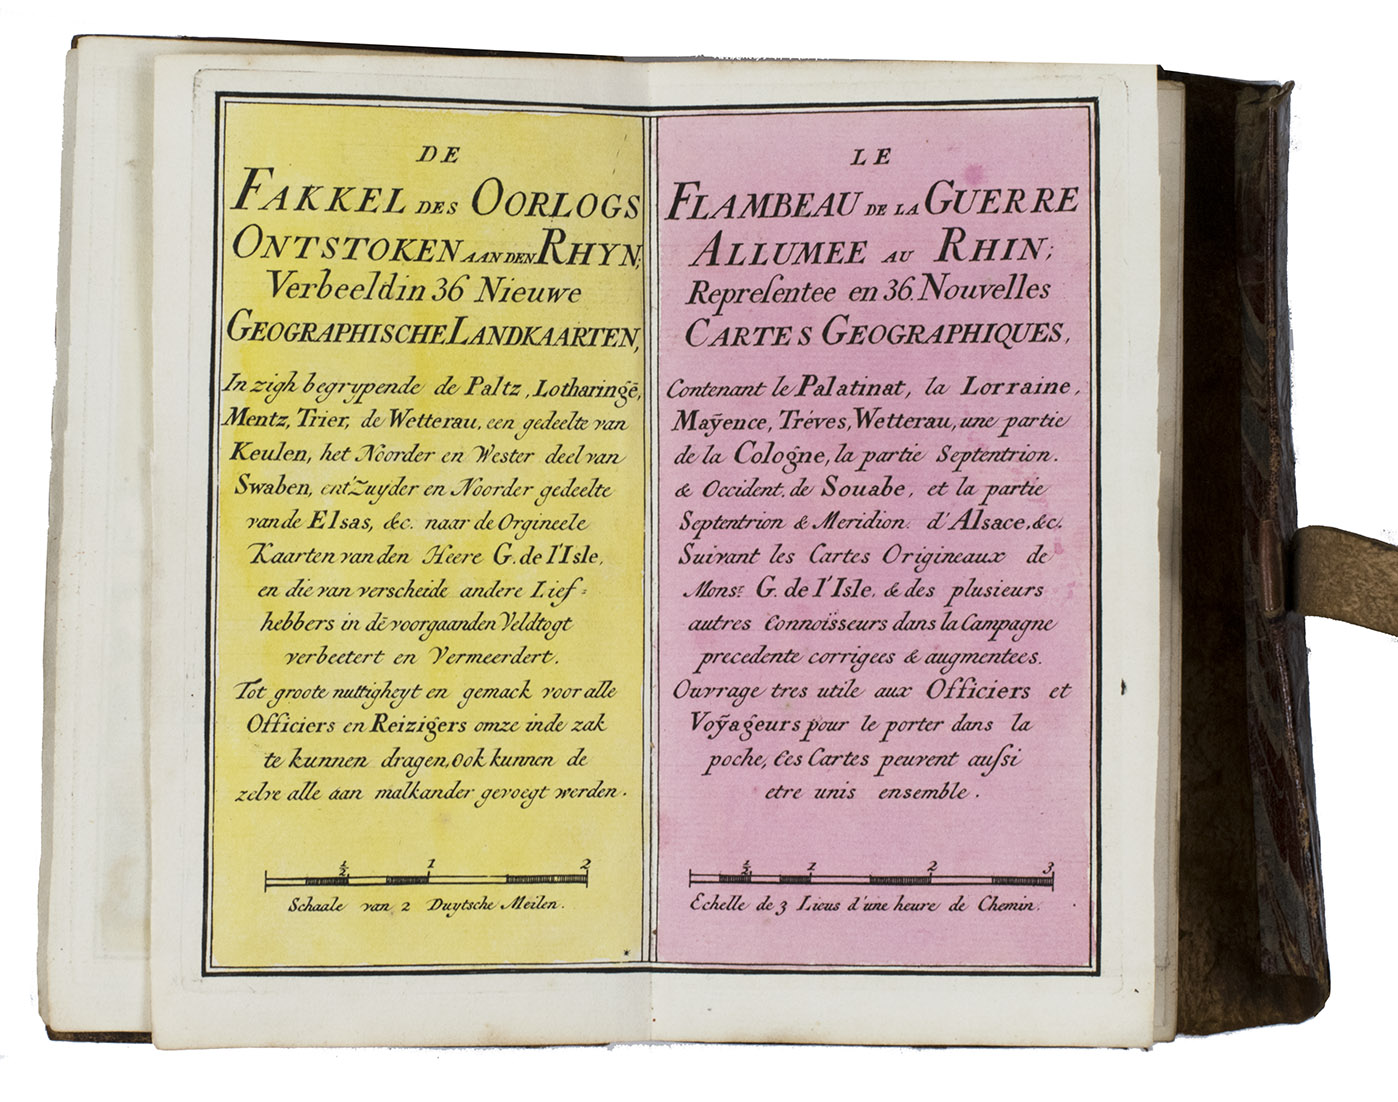 DE
FAKKEL DES OORLOGS
ONTSTOKEN AAN DEN RHYN;
Verbeeld in 36 Nieuwe
GEOGRAPHISCHE LANDKAARTEN,
In zigh begrypende de Paltz, Lotharingē,
Mentz, Trier, de Wetterau, een gedeelte van
Keulen, het Noorder en Wester deel van
Swaben, ent Zuyder en Noorder gedeelte
van de Elsas, &c. naar de Orgineele
Kaarten van den Heere G. de l'Isle,
en die van verscheide andere Lief=
hebbers in dē voorgaanden Veldtogt
verbeetert en Vermeerdert.
Tot groote nuttigheyt en gemack voor alle
Officiers en Reizigers om ze in de zak
te kunnen dragen, Ook kunnen de
zelve alle aan malkander gevoegt werden.
½ 1 2
Schaale van 2 Duytsche Meilen.
*
LE
FLAMBEAU DE LA GUERRE
ALLUMEE AU RHIN;
Repreſentee en 36. Nouvelles
CARTES GEOGRAPHIQUES,
Contenant le Palatinat, la Lorraine,
Maÿence, Tréves, Wetterau, une partie
de la Cologne, la partie Septentrion.
& Occident. de Souabe, et la partie
Septentrion & Meridion. d'Alsace, &c.
Suivant les Cartes Origineaux de
Monsr. G. de l'Isle, & des plusieurs
autres Connoïsseurs dans la Campagne
precedente corrigees & augmentees.
Ouvrage tres utile aux Officiers et
Voÿageurs pour le porter dans la
poche, Ces Cartes peuvent auſsi
etre unis ensemble.
½ 1 2 3
Echelle de 3 Lieus d'une heure de Chemin.